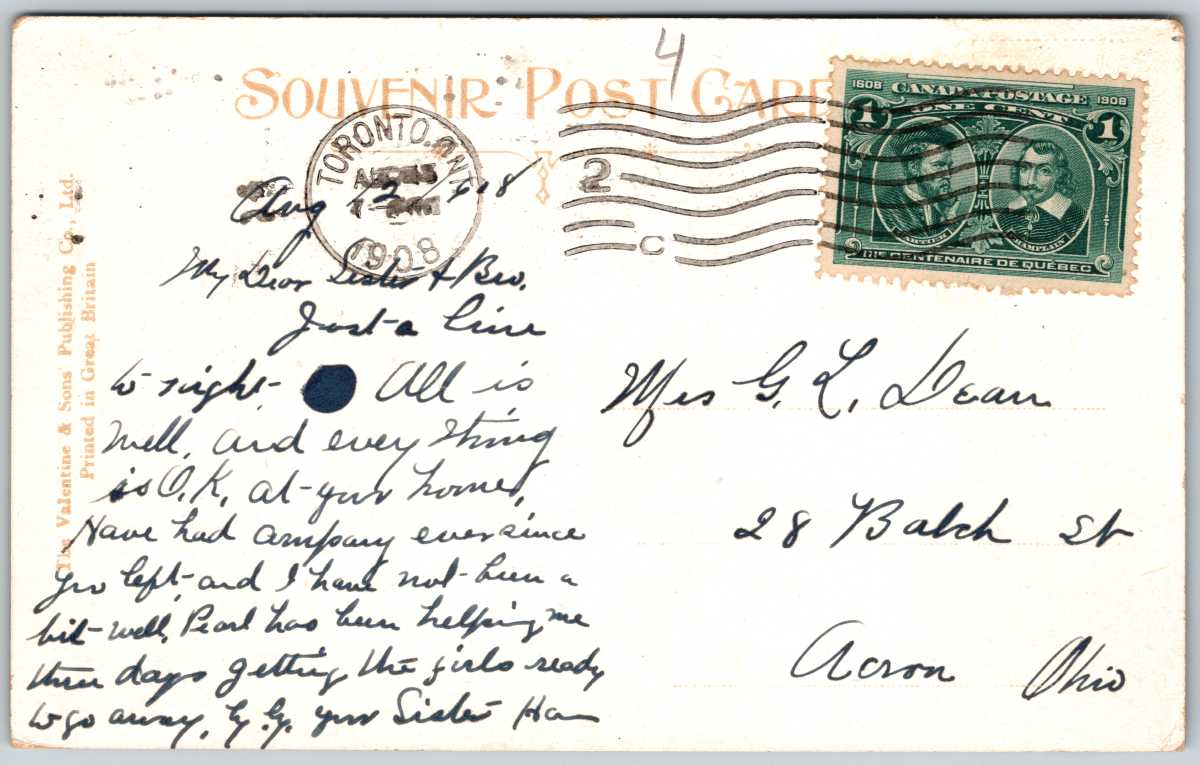 4
SOUVENIR POST CARD
1608 CANADA POSTAGE 1908
1 ONE CENT 1
CARTIER CHAMPLAIN
IIIE CENTENAIRE DE QUÉBEC
TORONTO. ONT
1908
2
C
The Valentine & Sons' Publishing Co., Ltd.
Printed in Great Britain
Aug
My Dear Sister & Bro,
Just a line
to night. All is
Well, and every thing
is O.K, at your home,
Have had company ever since
you left, and I have not been a
bit well, Pearl has been helping me
three days getting the girls ready
to go away, your Sister
Mrs G. L. Dean
28 Balch St
Acron Ohio